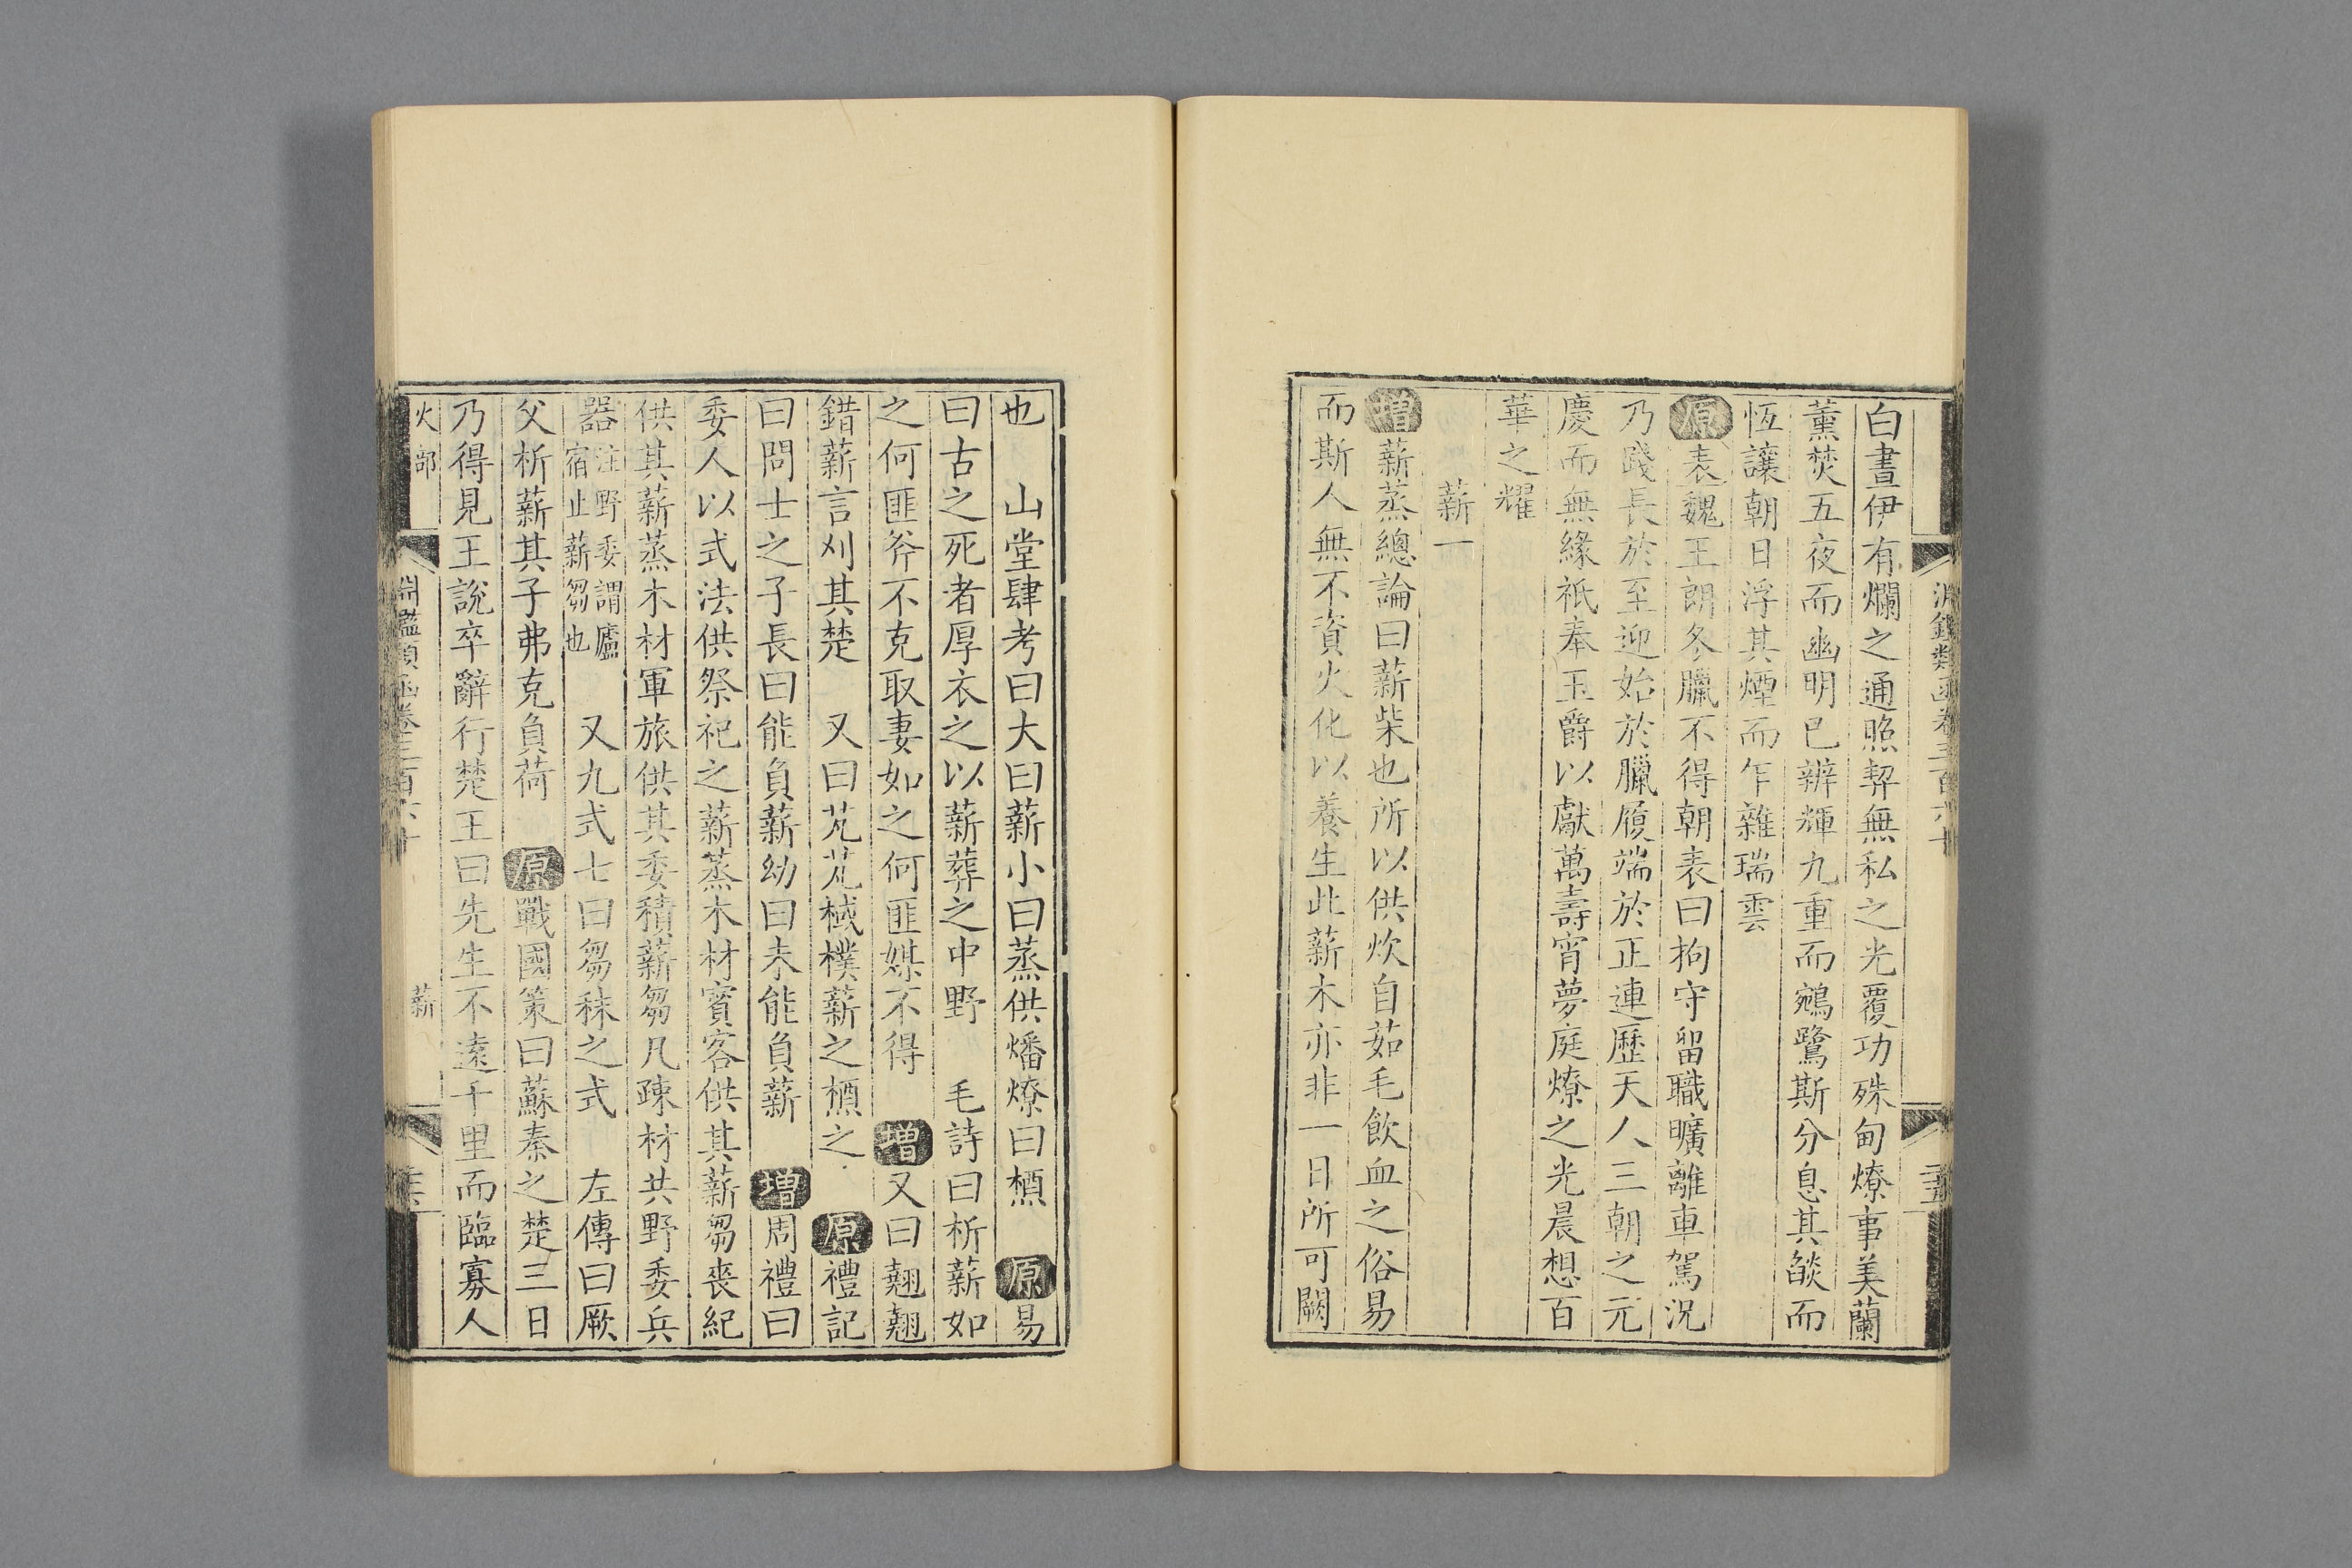 白晝伊有爛之通照契無私之光覆功殊甸燎事美蘭
薰焚五夜而幽明已辨輝九重而鵷鷺斯分息其燄而
恆讓朝日浮其煙而乍雜瑞雲
原表魏王朗冬臘不得朝表曰拘守留職曠離車駕況
乃踐長於至迎始於臘履端於正連歷天人三朝之元
慶而無緣祇奉玉爵以獻萬壽宵夢庭燎之光晨想百
華之耀
薪一
增薪蒸總論曰薪柴也所以供炊自茹毛飲血之俗易
而斯人無不資火化以養生此薪木亦非一日所可闕
也　山堂肆考曰大曰薪小曰蒸供燔燎曰槱　原易
曰古之死者厚衣之以薪葬之中野　毛詩曰析薪如
之何匪斧不克取妻如之何匪媒不得　增又曰翹翹
錯薪言刈其楚　又曰芃芃棫樸薪之槱之　原禮記
曰問士之子長曰能負薪幼曰未能負薪　增周禮曰
委人以式法供祭祀之薪蒸木材賓客供其薪芻喪紀
供其薪蒸木材軍旅供其委積薪芻凡疎材共野委兵
器注野委謂廬宿止薪芻也　又九式七曰芻秣之式　左傳曰厥
父析薪其子弗克負荷　原戰國策曰蘇秦之楚三日
乃得見王說卒辭行楚王曰先生不遠千里而臨寡人
火部
淵鑑類函卷三百六十
薪